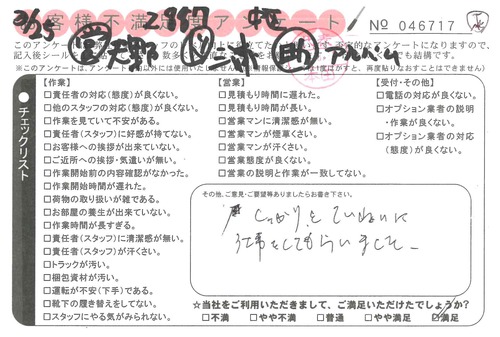 3/25
お客様不満足度アンケート
No 046717
天野
アルバム
※このアンケートは、アンケート
チェックリスト
【作業】
□責任者の対応(態度)が良くない。
□他のスタッフの対応(態度)が良くない。
□作業を見ていて不安がある。
□責任者(スタッフ)に好感が持てない。
□お客様への挨拶が出来ていない。
□ご近所への挨拶・気遣いが無い。
□作業開始前の内容確認がなかった。
□作業開始時間が遅れた。
□荷物の取り扱いが雑である。
□お部屋の養生が出来ていない。
□作業時間が長すぎる。
□責任者(スタッフ)に清潔感が無い。
□責任者(スタッフ)が汗くさい。
□トラックが汚い。
□梱包資材が汚い。
□運転が不安(下手)である。
□靴下の履き替えをしてない。
□スタッフにやる気がみられない。
【営業】
□見積もり時間に遅れた。
□見積もり時間が長い。
□営業マンに清潔感が無い。
□営業マンが煙草くさい。
□営業マンが汗くさい。
□営業態度が良くない。
□営業の説明と作業が一致してない。
【受付・その他】
□電話の対応が良くない。
□オプション業者の説明
・作業が良くない。
□オプション業者の対応
(態度)が良くない。
その他、ご意見・ご要望等ありましたらお書き下さい。
しっかりとていねいに
仕事をしてもらいました。
☆当社をご利用いただきまして、ご満足いただけたでしょうか?
□不満 □やや不満 □普通 □やや満足 ☑満足